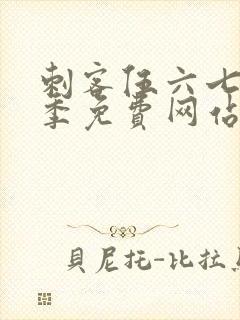 刺客伍六七
季免費网站
貝尼托-比拉